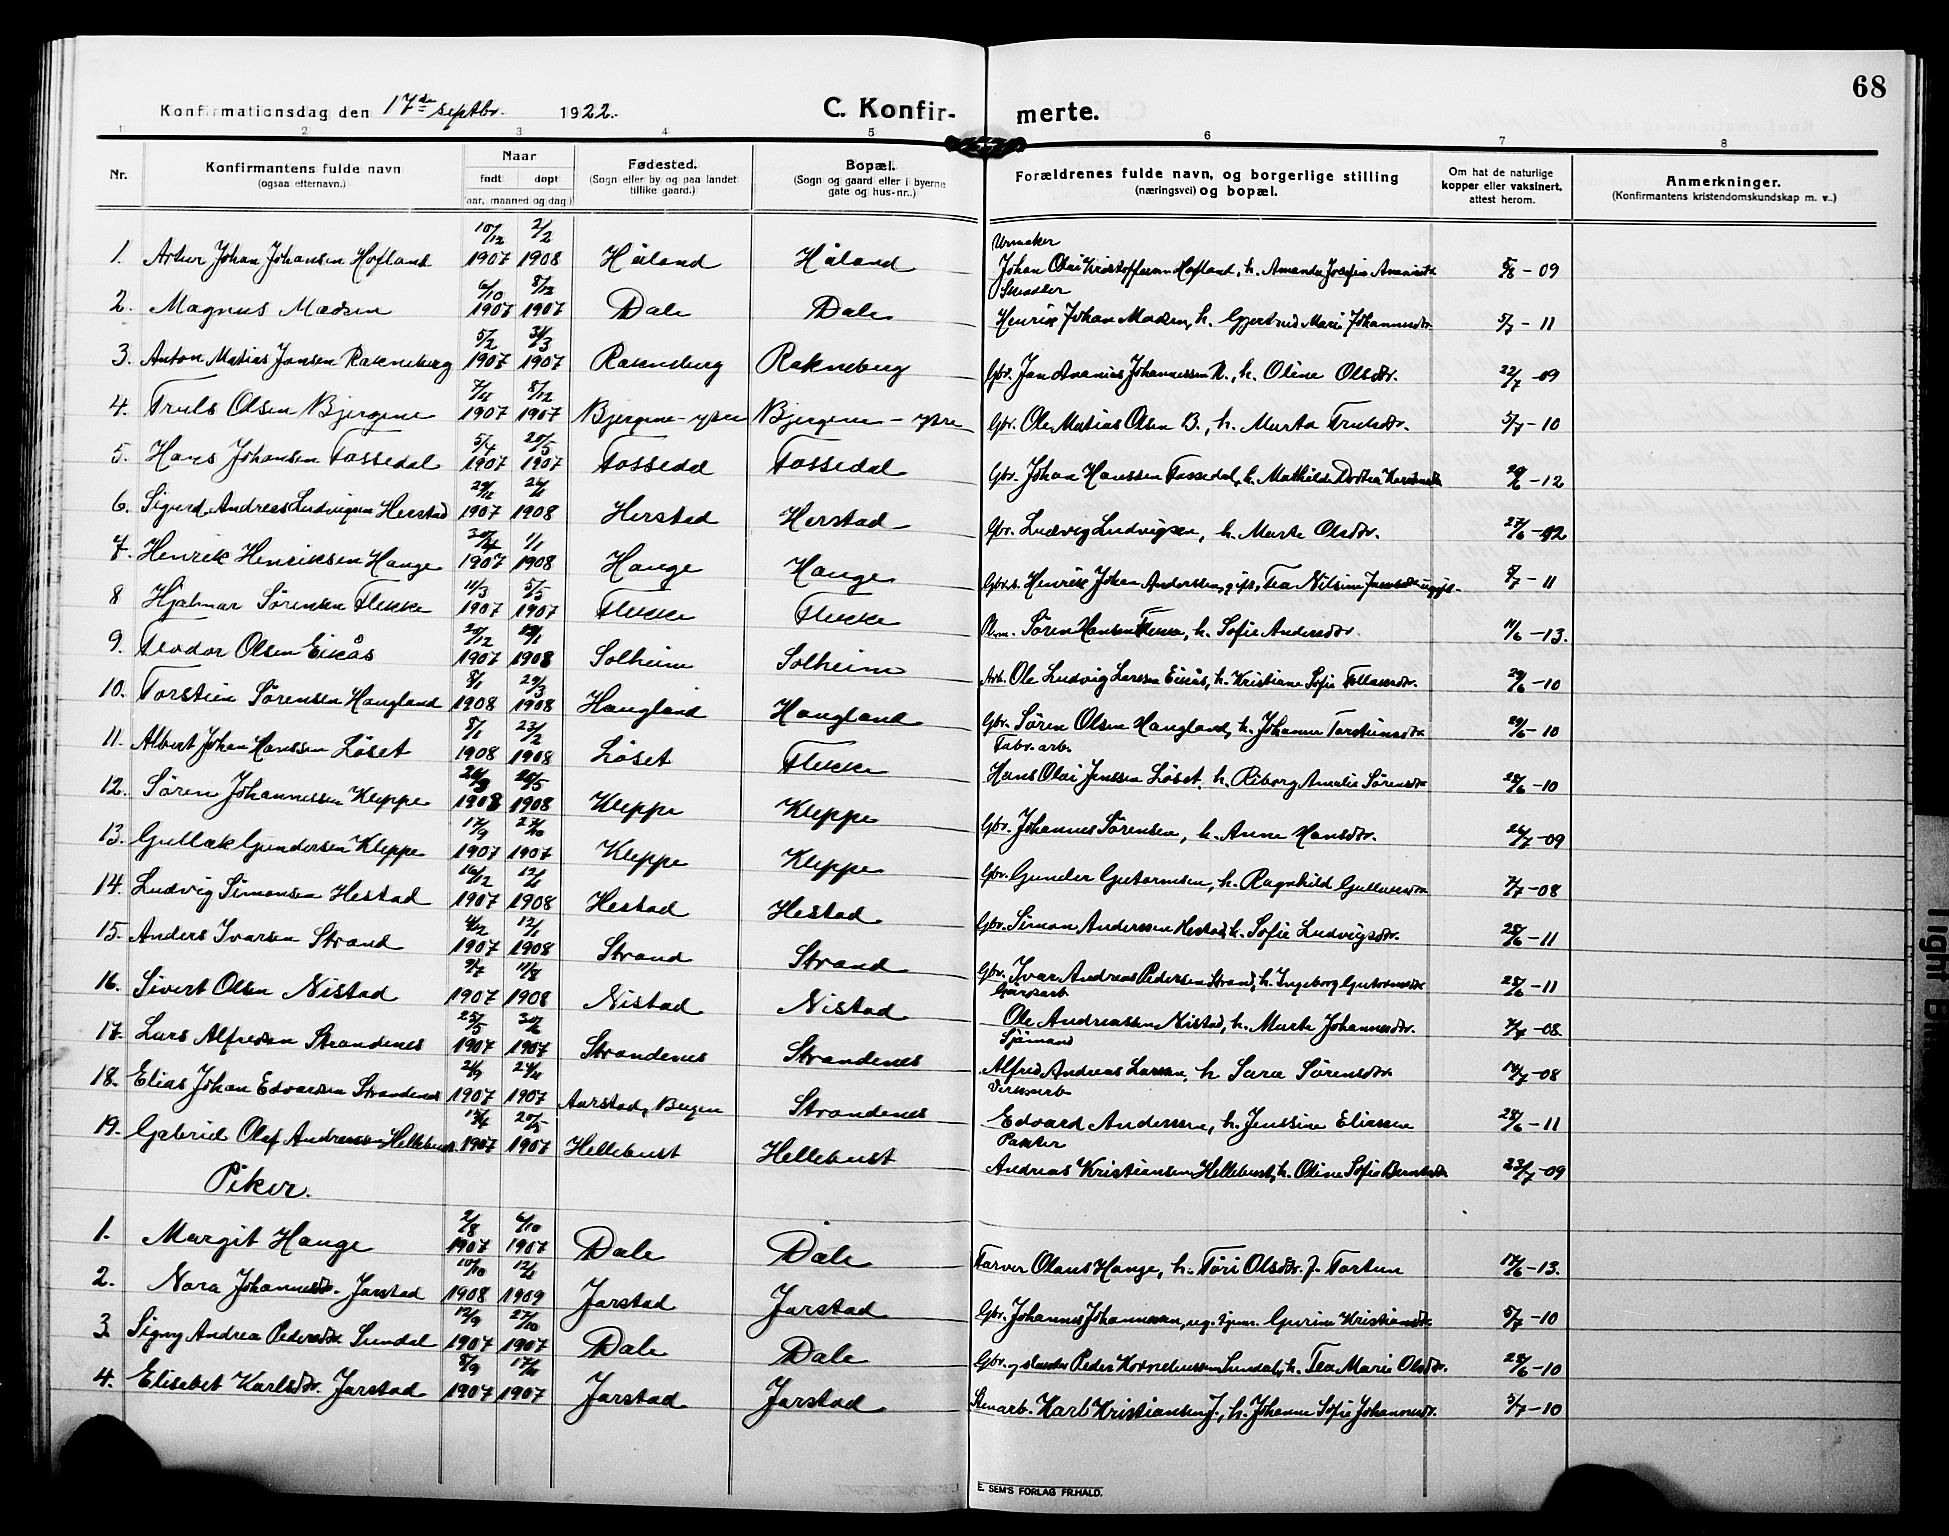 68
Konfirmationsdag den 17de septbr. 1922.
C. Konfir- merte.
1 2 3 4 5 6 7 8
Nr.
Konfirmantens fulde navn
(ogsaa efternavn.)
Naar
født døpt
(aar, maaned og dag.)
Fødested.
(Sogn eller by og paa landet
tillike gaard.)
Bopæl.
(Sogn og gaard eller i byerne
gate og hus-nr.)
Forældrenes fulde navn, og borgerlige stilling
(næringsvei) og bopæl.
Om hat de naturlige
kopper eller vaksinert,
attest herom.
Anmerkninger.
(Konfirmantens kristendomskundskap m. v..)
10/12 2/2 Urmaker
1. Artur Johan Johansen Hofland 1907 1908 Håland Håland Johan Olai Kristoffersen Hofland, h. Amanda Josefin 5/8 - 09
6/10 8/12 Snedker
2. Magnus Madsen 1907 1907 Dale Dale Henrik Johan Madsen, h. Gjertrud Marie Johannesdr. 5/7 - 11
5/2 31/3
3. Anton Matias Jansen Rakneberg 1907 1907 Rakneberg Rakneberg Gbr. Jan Ananias Johannessen R., h. Oline Olsdr. 22/7 - 09
7/11 8/12
4. Truls Olsen Bjergene 1907 1907 Bjergene - ytre Bjergene - ytre Gbr. Ole Matias Olsen B., h. Marta Trulsdr. 5/7 - 10
5/4 20/5
5. Hans Johansen Tossedal 1907 1907 Tossedal Tossedal Gbr. Johan Hanssen Tossedal, h. Mathilde Dortea - 12
6. Sigurd Andreas Ludvigsen Herstad 1907 1908 Herstad Herstad Gbr. Ludvig Ludvigsen, h. Marte Olsdr. 27/6 - 12
1/1
7. Henrik Henriksen Hauge 1907 1908 Hauge Hauge Henrik Johan Anderssen, gift, Tea Nilsine - 11
11/3 5/5
8 Hjalmar Sørensen Flekke 1907 1907 Flekke Flekke Søren Hansen Flekke, h. Sofie Andersdr. 11/6 - 13.
20/12
9. Teodor Olsen Eikås 1907 1908 Solheim Solheim Arb. Ole Ludvig Larssen Eikås, h. Kristiane Sofie 29/6 - 10
8/1 29/3
10. Torstein Sørensen Haugland 1908 1908 Haugland Haugland Gbr. Søren Olsen Haugland, h. Johanne Torsteinsdr. 29/6 - 10
8/1 23/2 Fabr. arb.
11. Albert Johan Hanssen Løset 1908 1908 Løset Flekke Hans Olai Jenssen Løset, h. Riborg Amalie Sørensdr. 28/6 - 10
12. Søren Johannessen Kleppe 1908 1908 Kleppe Kleppe Gbr. Johannes Sørensen, h. Anne Hansdr. 26/7 - 09
17/9 27/10
13. Gullak Gundersen Kleppe 1907 1907 Kleppe Kleppe Gbr. Gunder Gutormsen, h. Ragnhild 7/7 - 08
16/12 12/1
14. Ludvig Simonsen Hestad 1907 1908 Hestad Hestad Gbr. Simon Anderssen Hestad, h. Sofie Ludvigsdr. 28/6 - 11
12/1
15. Anders Ivarsen Strand 1907 1908 Strand Strand Gbr. Ivar Andreas Pedersen Strand, h. Ingeborg Gutormsdr. 28/6 - 11
9/7 11/8 Gårdsarb
16. Sivert Olsen Nistad 1907 1908 Nistad Nistad Ole Andreassen Nistad, h. Marte Johannesdr. 7/7 - 08
25/5 30/6 Sjømand
17. Lars Alfredsen Strandenes 1907 1907 Strandenes Strandenes Alfred Andreas Larsen, h. Sara Sørensdr. 14/7 - 08
21/9 24/11
18. Elias Johan Edvardsen Strandenes 1907 1907 Aarstad, Bergen Strandenes Edvard Andersen, h. Jenssine Eliassen 28/6 - 11
20/5 Pakker
19. Gabriel Olaf Andreassen Hellebust. 1907 1907 Hellebust Hellebust Andreas Kristiansen Hellebust, h. Oline Sofie 23/7 - 09
Piker.
2/8 6/10
1. Margit Hauge 1907 1907 Dale Dale Farver Olaus Hauge, h. Tori Olsdr. f. Fortun 17/6 - 13.
10/10 12/1
2. Nora Johannesdr. Jarstad 1908 1909 Jarstad Jarstad Gbr. Johannes Johannessen, ug. tjener. Gurine Kristiansdr. 5/7 - 10
12/9 27/10
3 Signy Andrea Pedersdr. Sundal 1907 1907 Dale Dale Gbr. og slagter Peder Korneliussen Sundal, h. Tea Marie Olsdr. 28/6 - 10
8/9 17/11
4. Elisebet Karlsdr. Jarstad 1907 1907 Jarstad Jarstad Stenarb. Karl Kristiansen J., h. Johanne Sofie Johannesdr. 5/7 - 10
E. SEM'S FORLAG FR.HALD.